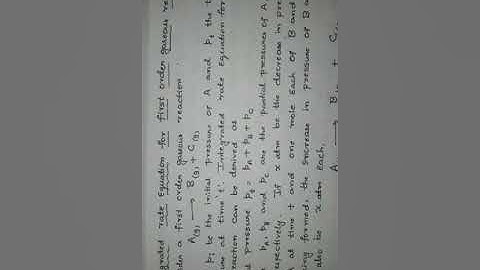 grated rate Equation for first order gaseous re
der a first order gaseous reaction
A(g) → B(g) + C(g)
Pi be the initial pressure of A and Pt the t
ure at time 't'. Integrated rate Equation for
eaction can be derived as
l pressure Pt = PA + PB + PC
PA, PB and PC are the partial pressures of A,
spectively. If x atm be the decrease in pre
A at time t and one mole Each of B and
ing formed, the increase in pressure of B a
also be x atm each.
A → B + C